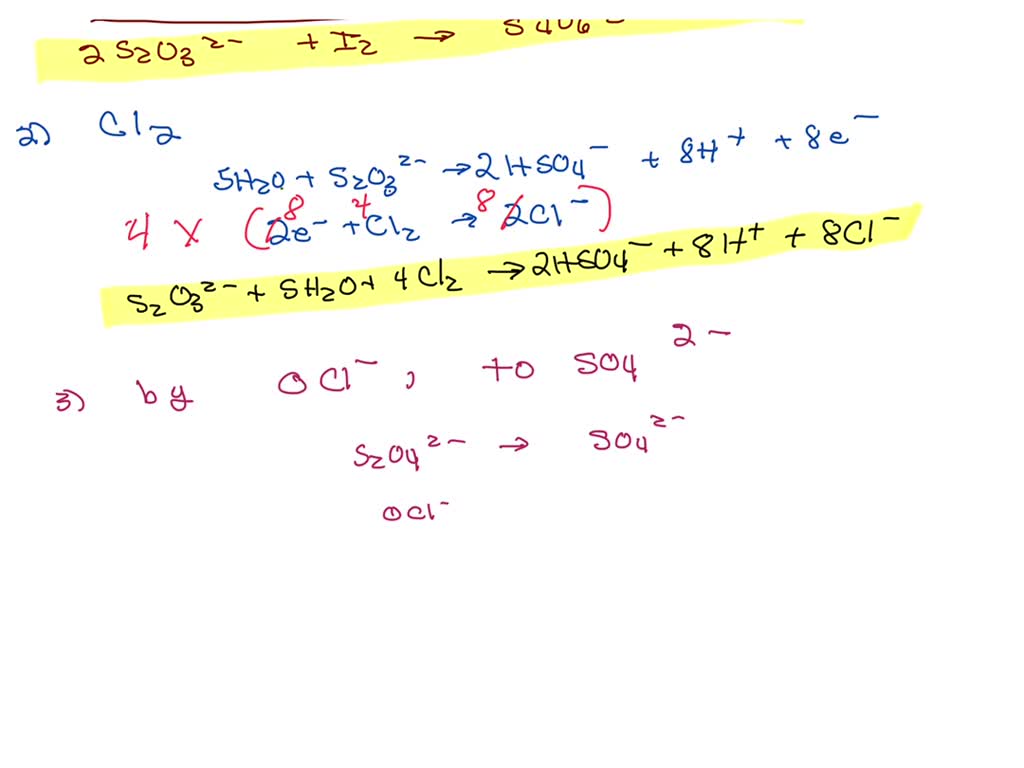 2 S2O3 2- + I2 → S4O6 2-
2) Cl2
5H2O + S2O3 2- → 2 HSO4 - + 8H+ + 8e-
4 x (2e- 8 + Cl2 4 → 8 2Cl-)
S2O3 2- + 5H2O + 4 Cl2 → 2HSO4 - + 8H+ + 8Cl-
3) by OCl-, to SO4 2-
S2O4 2- → SO4 2-
OCl-